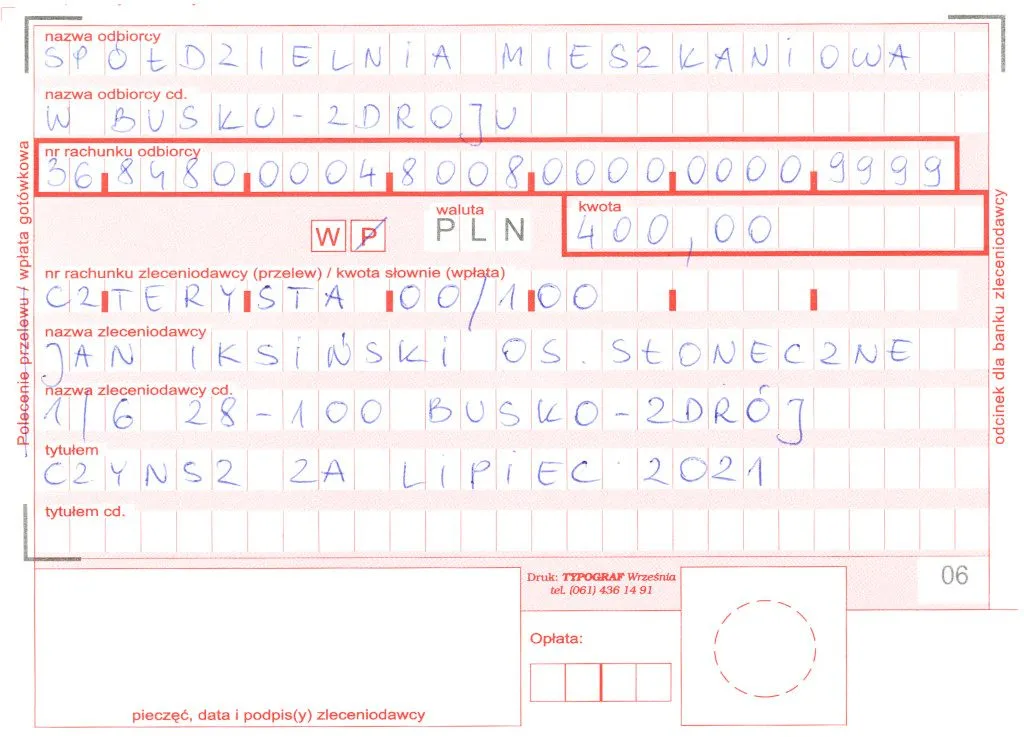 nazwa odbiorcy
SPÓŁDZIELNIA MIESZKANIOWA
nazwa odbiorcy cd.
W BUSKU-ZDROJU
nr rachunku odbiorcy
36 8480 0004 8008 0000 0000 9999
W P
waluta
PLN
kwota
400,00
nr rachunku zleceniodawcy (przelew) / kwota słownie (wpłata)
CZTERYSTA 00/100
nazwa zleceniodawcy
JAN IKSIŃSKI OS. SŁONECZNE
nazwa zleceniodawcy cd.
1/6 28-100 BUSKO-ZDRÓJ
tytułem
CZYNSZ ZA LIPIEC 2021
tytułem cd.
Polecenie przelewu / wpłata gotówkowa
odcinek dla banku zleceniodawcy
Druk: TYPOGRAF Września
tel. (061) 436 14 91
06
Opłata:
pieczęć, data i podpis(y) zleceniodawcy